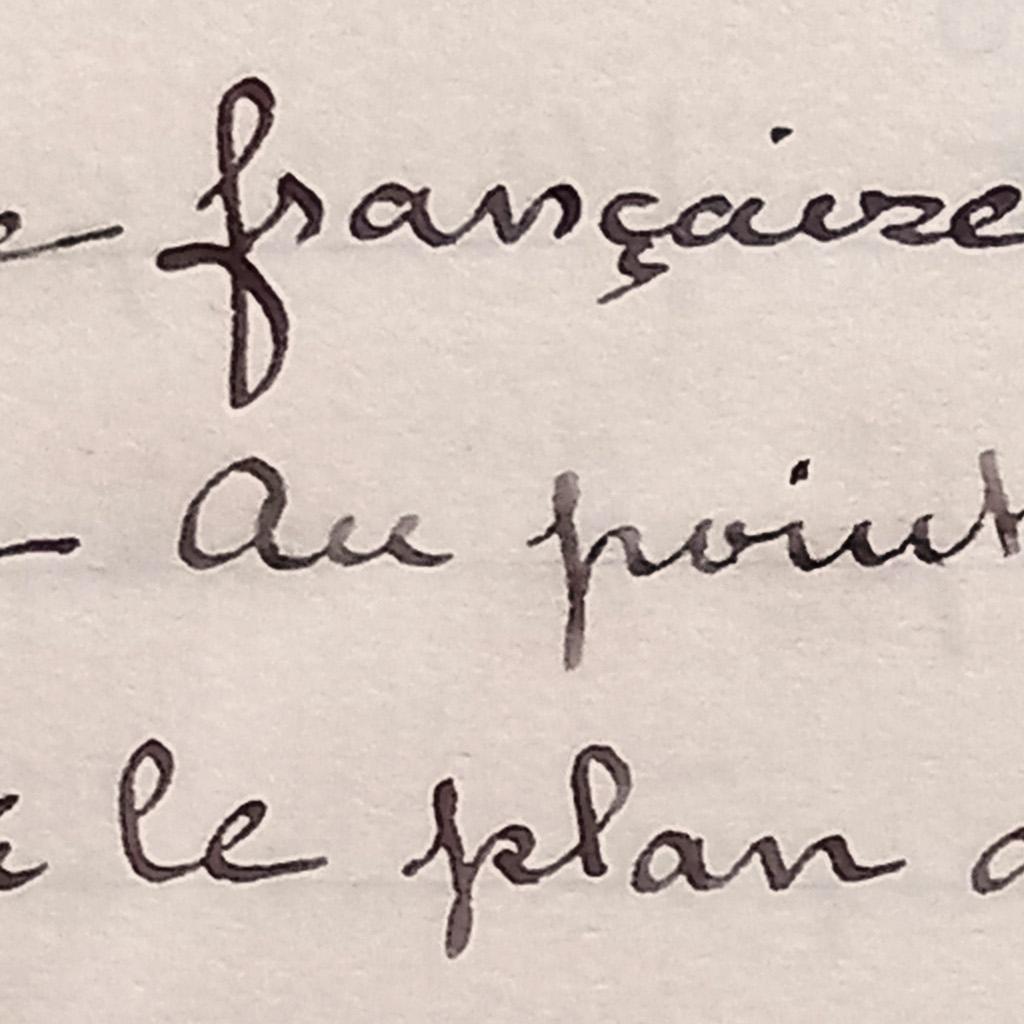 e française
- Au point
le plan d